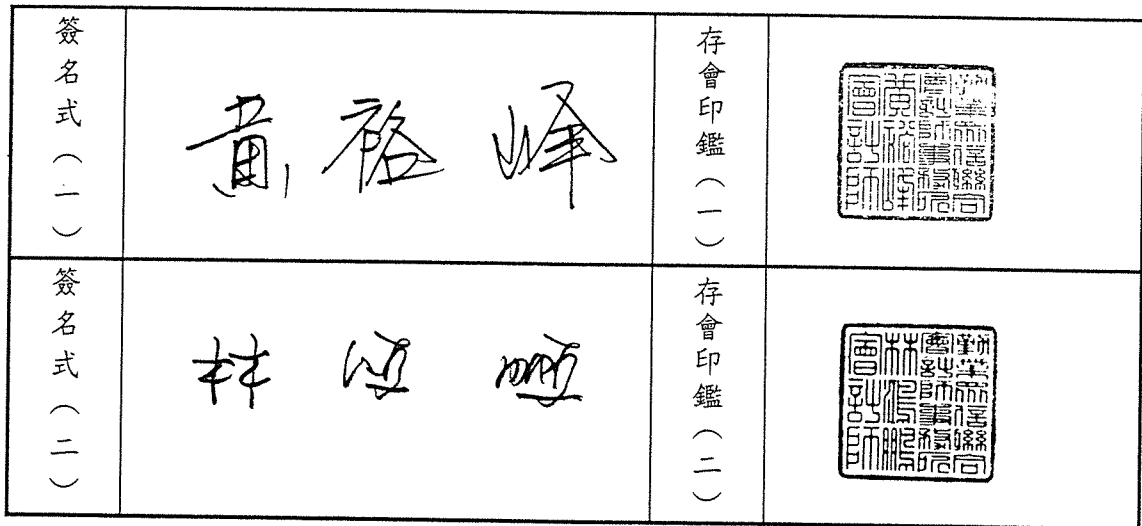 簽名式（一）
黃裕峰
存會印鑑（一）
勤業眾信聯合
會計師事務所
黃裕峰
會計師
簽名式（二）
林鴻鵬
存會印鑑（二）
勤業眾信聯合
會計師事務所
林鴻鵬
會計師